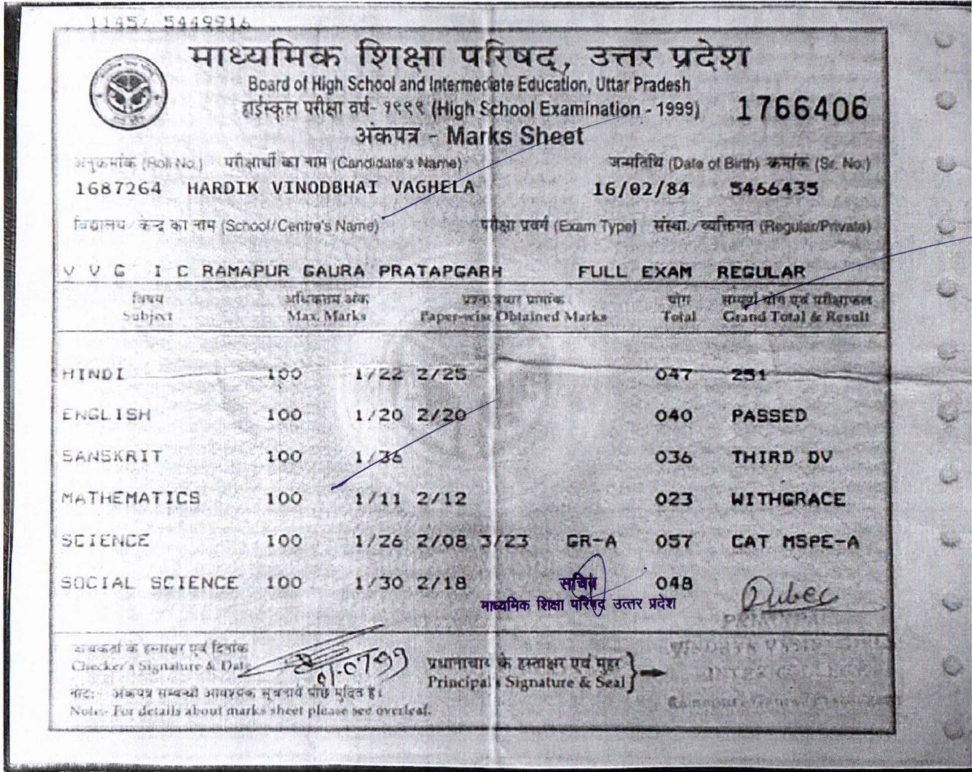 1145/ 5449916
माध्यमिक शिक्षा परिषद, उत्तर प्रदेश
Board of High School and Intermediate Education, Uttar Pradesh
हाईस्कूल परीक्षा वर्ष- १९९९ (High School Examination - 1999) 1766406
अंकपत्र - Marks Sheet
अनुक्रमांक (Roll No.) परीक्षार्थी का नाम (Candidate's Name) जन्मतिथि (Date of Birth) क्रमांक (Sr. No.)
1687264 HARDIK VINODBHAI VAGHELA 16/02/84 5466435
विद्यालय/ केन्द्र का नाम (School/Centre's Name) परीक्षा प्रवर्ग (Exam Type) संस्था/व्यक्तिगत (Regular/Private)
V V G I C RAMAPUR GAURA PRATAPGARH FULL EXAM REGULAR
विषय अधिकतम अंक प्रश्नपत्रवार प्राप्तांक योग सम्पूर्ण योग एवं परीक्षाफल
Subject Max. Marks Paper-wise Obtained Marks Total Grand Total & Result
HINDI 100 1/22 2/25 047 251
ENGLISH 100 1/20 2/20 040 PASSED
SANSKRIT 100 1/36 036 THIRD DV
MATHEMATICS 100 1/11 2/12 023 WITHGRACE
SCIENCE 100 1/26 2/08 3/23 GR-A 057 CAT MSPE-A
SOCIAL SCIENCE 100 1/30 2/18 048
सचिव
माध्यमिक शिक्षा परिषद् उत्तर प्रदेश
Dubec
PRINCIPAL
के हस्ताक्षर एवं दिनांक
Checker's Signature & Date
प्रधानाचार्य के हस्ताक्षर एवं मुहर
Principal's Signature & Seal
नोट:- अंकपत्र सम्बन्धी आवश्यक सूचनायें पीछे मुद्रित है।
Note:- For details about marks sheet please see overleaf.